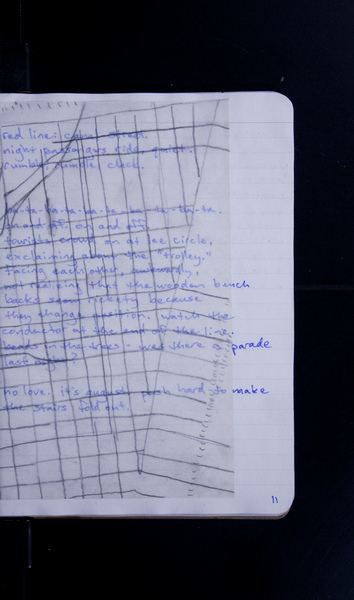 red line: canal street.
night passengers ride, quiet.
rumble rumble clack.
ta-ta-ta-ta-ta-ta-ta-ta-ta-ta.
on and off. on and off.
tourists crowd on at lee circle,
exclaiming about the "trolley."
facing each other, awkwardly,
not realizing that the wooden bench
backs seem rickety because
they change position. watch the
conductor at the end of the line.
beads in the trees - was there a parade
last night?
no love. it's august. push hard to make
the stairs fold out.
11